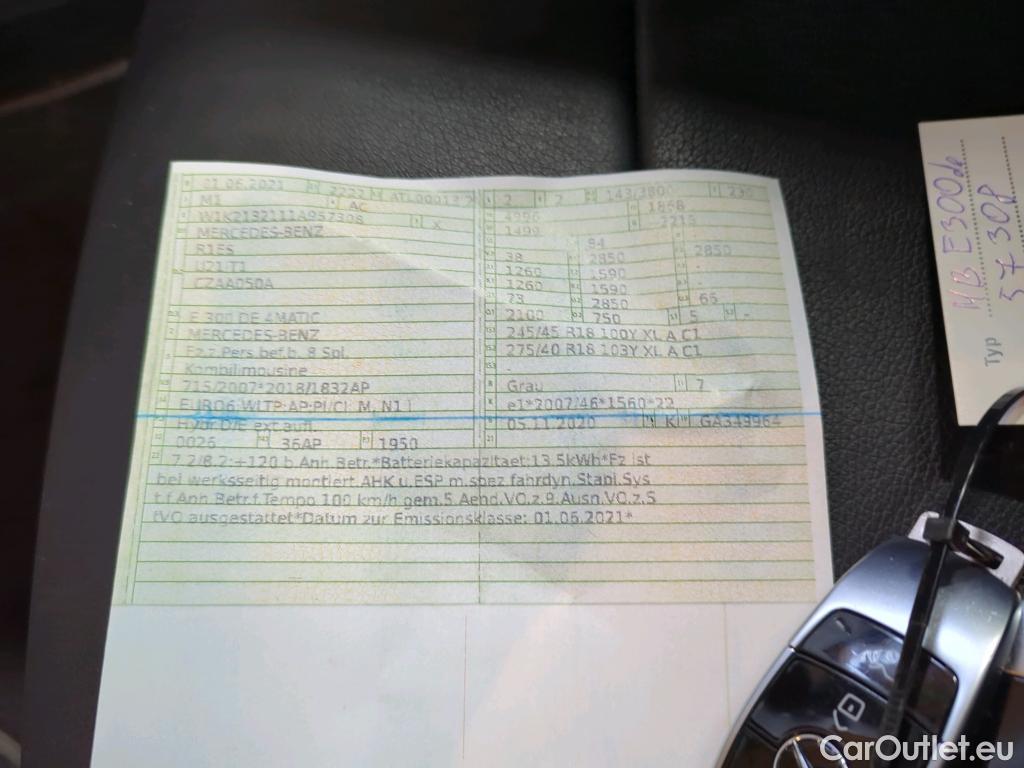 01.06.2021 2222 2 143/3800 230
M1 AC 4996 1868
W1K2132111A957308 X 1499 2215
MERCEDES-BENZ 84
R1ES 38 2850 2850
1260 1590
CZAA050A 1260 1590
73 2850 65
E 300 DE 4MATIC 2100 750 5 -
MERCEDES-BENZ 245/45 R18 100Y XL A C1
Fz.z.Pers.bef.b. 8 Spl. 275/40 R18 103Y XL A C1
Kombilimousine -
715/2007*2018/1832AP Grau 7
EURO6 WLTP-AP-PI/CI M, N1 I e1*2007/46*1560*22
Hybr.D/E ext.aufl. 05.11.2020 K GA349964
0026 36AP 1950
7.2/8.2:+120 b.Anh.Betr.*Batteriekapazitaet:13.5kWh*Fz ist
bei werksseitig montiert.AHK u.ESP m.spez.fahrdyn.Stabi.Sys
t.f.Anh.Betr.f.Tempo 100 km/h gem.5.Aend.VO.z.9.Ausn.VO.z.S
tVO ausgestattet*Datum zur Emissionsklasse: 01.06.2021*
MB E300de
57 30P
Typ
CarOutlet.eu